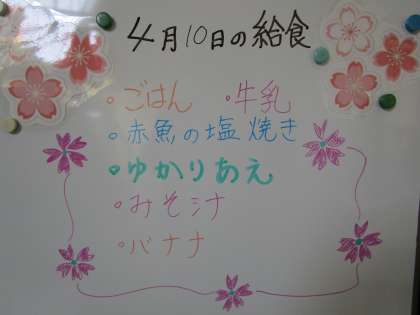 4月10日の給食
・ごはん ・牛乳
・赤魚の塩焼き
・ゆかりあえ
・みそ汁
・バナナ